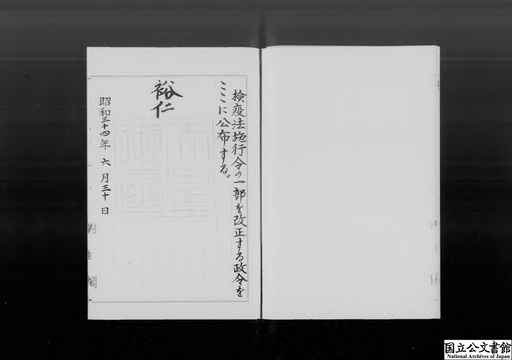 検疫法施行令の一部を改正する政令を
ここに公布する。
裕仁
昭和三十四年六月三十日
国立公文書館
National Archives of Japan